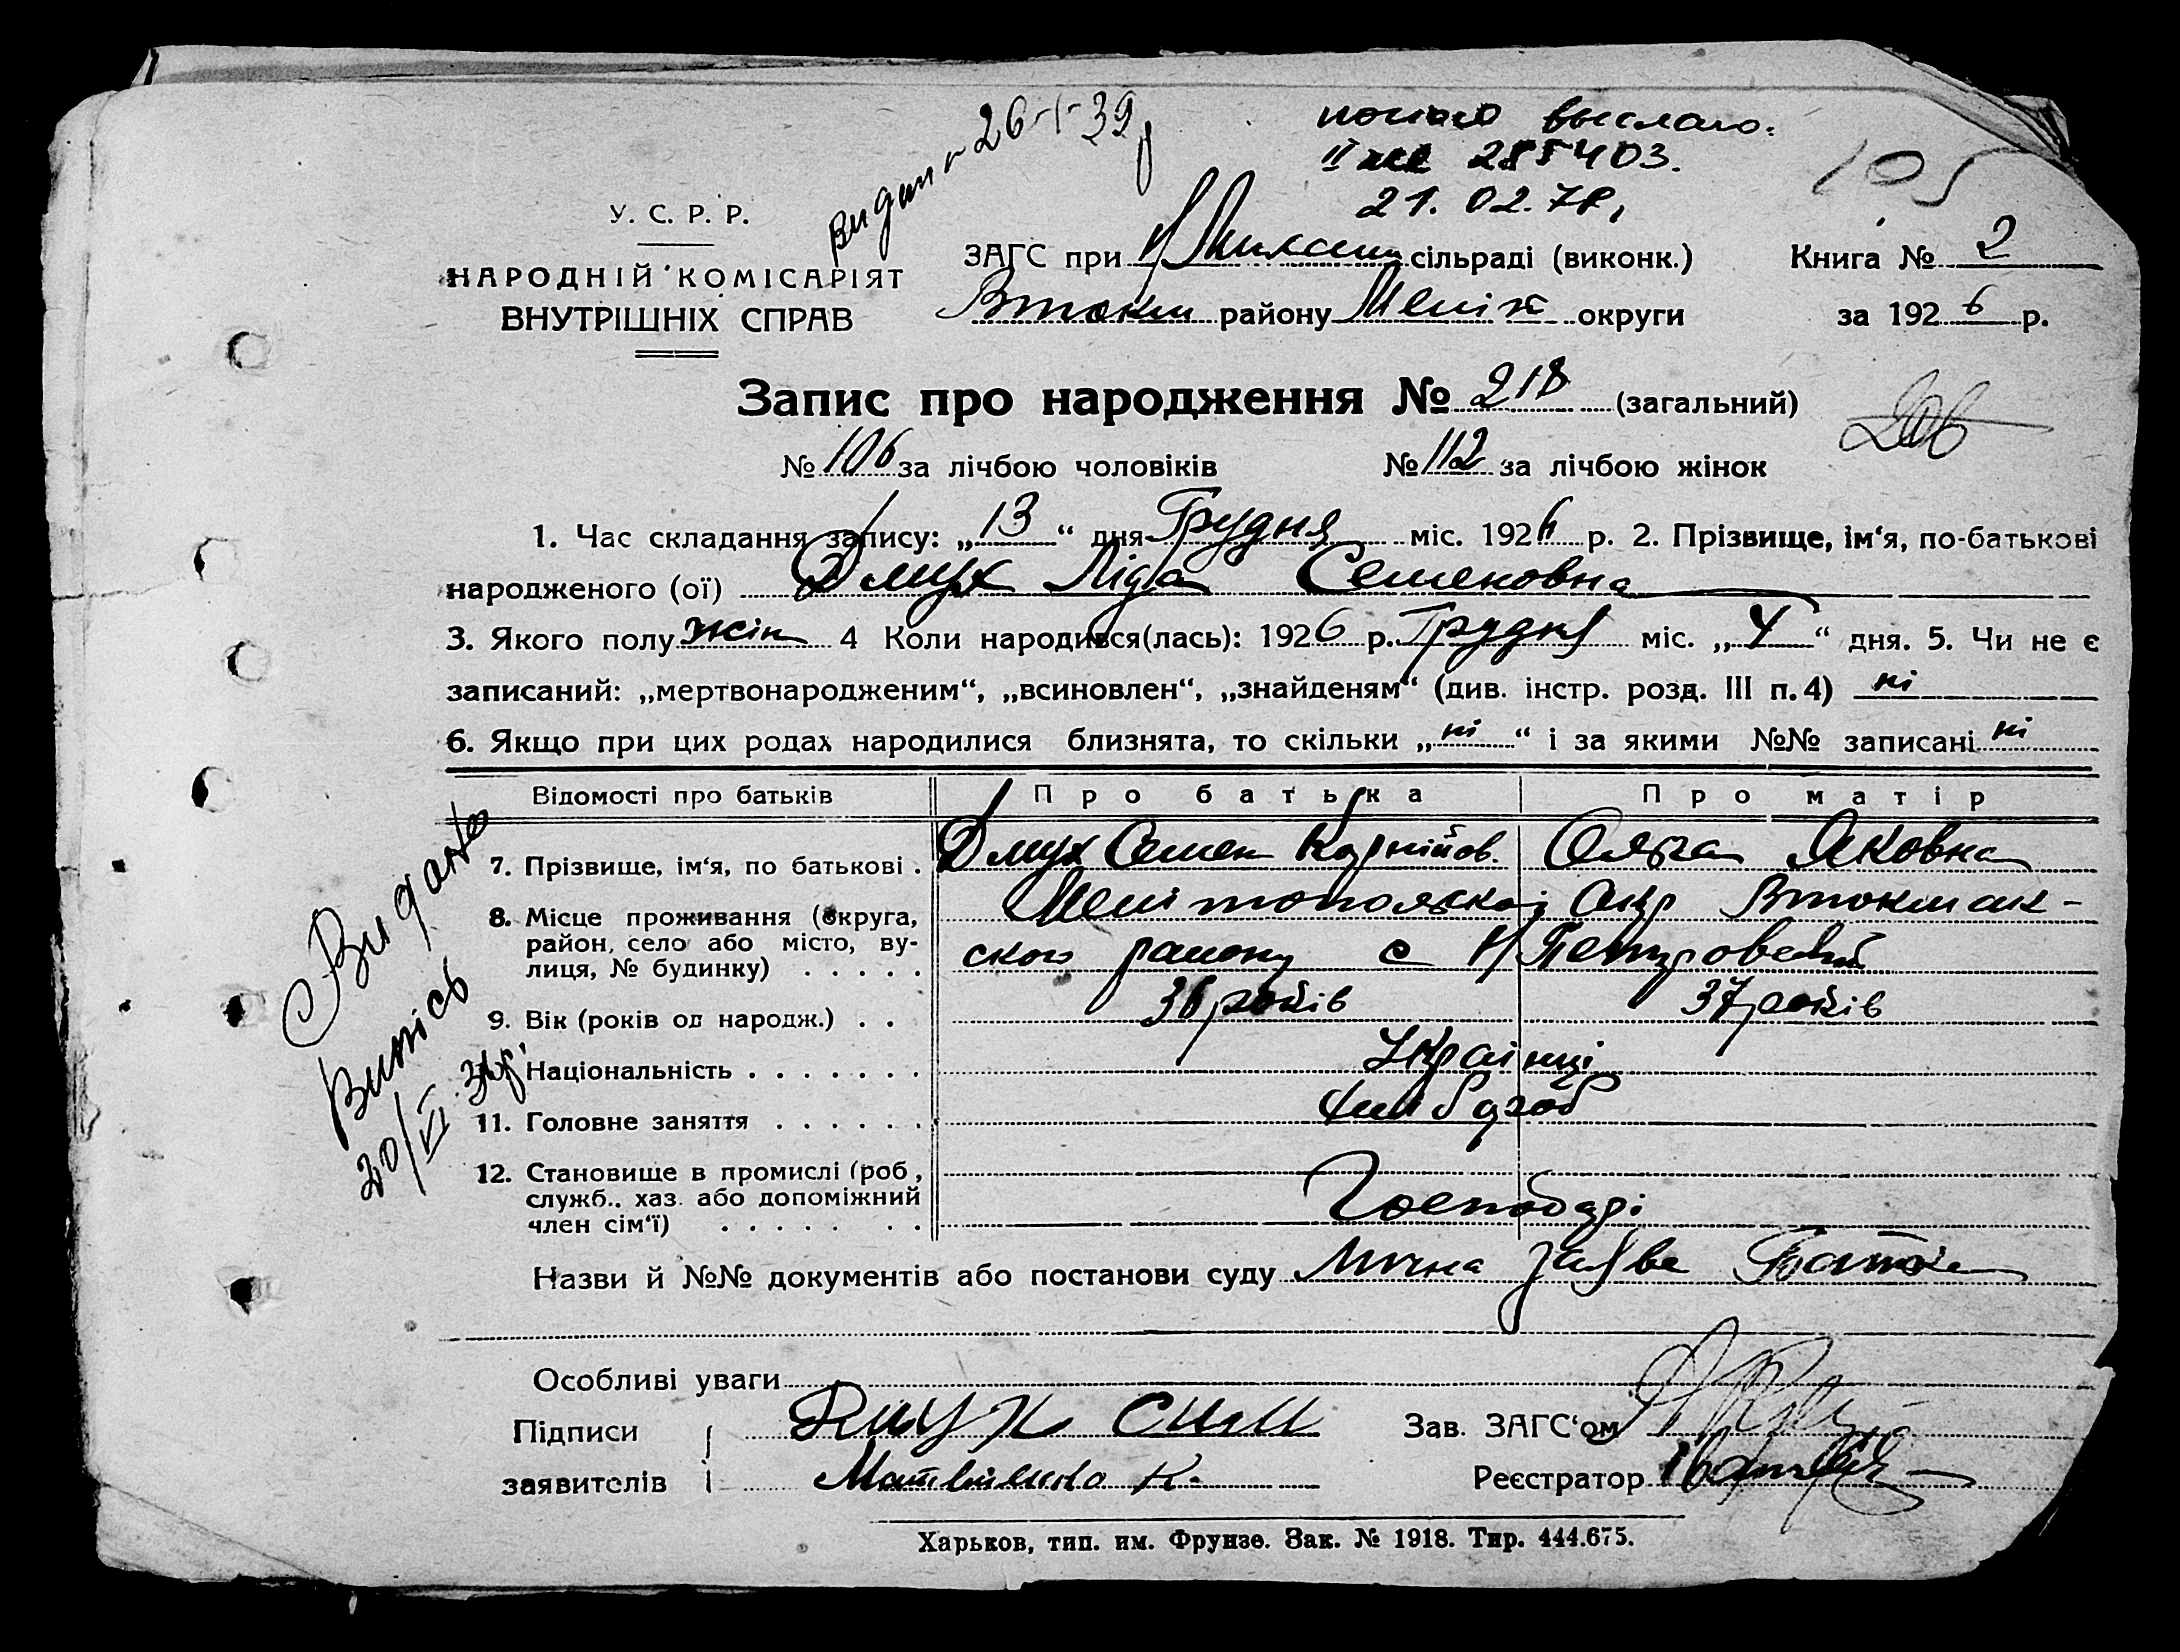 видан 26-I-39р
выслано.
21.02.78.
105
У. С. Р. Р.
НАРОДНІЙ КОМІСАРІЯТ
ВНУТРІШНІХ СПРАВ
ЗАГС при сільраді (виконк.)
Книга № 2
Втокм району Меліт округи
за 1926 р.
Запис про народження № 218 (загальний)
206
№ 106 за лічбою чоловіків № 112 за лічбою жінок
1. Час складання запису: „ 13 “ дня Грудня міс. 1926 р. 2. Прізвище, ім‘я, по-батькові
народженого (ої) Дмух Ліда Семеновна
3. Якого полу жін 4 Коли народився(лась): 1926 р. Грудня міс. „ 4 “ дня. 5. Чи не є
записаний: „мертвонародженим“, „всиновлен“, „знайденям“ (див. інстр. розд. III п. 4) ні
6. Якщо при цих родах народилися близнята, то скільки „ ні “ і за якими №№ записані ні
Відомості про батьків Про батька Про матір
7. Прізвище, ім‘я, по батькові . Дмух Семен Корнійов. Ольга Яковна
8. Місце проживання (округа, Мелітопольскої Окр Втокмак-
район, село або місто, ву- ского району с Н Петуровский
лиця, № будинку) . . . . .
9. Вік (років од народж.) . . 36 років 37 років
10. Національність . . . . . . . Українці
11. Головне заняття . . . . . . Хліборob
12. Становище в промислі (роб,
служб., хаз. або допоміжний Господарі
член сім‘ї) . . . . . . .
Видано
Витісь
20/VI
Назви й №№ документів або постанови суду Лична заява Батька
Особливі уваги
Підписи Дмух Зав. ЗАГС‘ом
заявителів К. Реєстратор
Харьков, тип. им. Фрунзе. Зак. № 1918. Тир. 444.675.